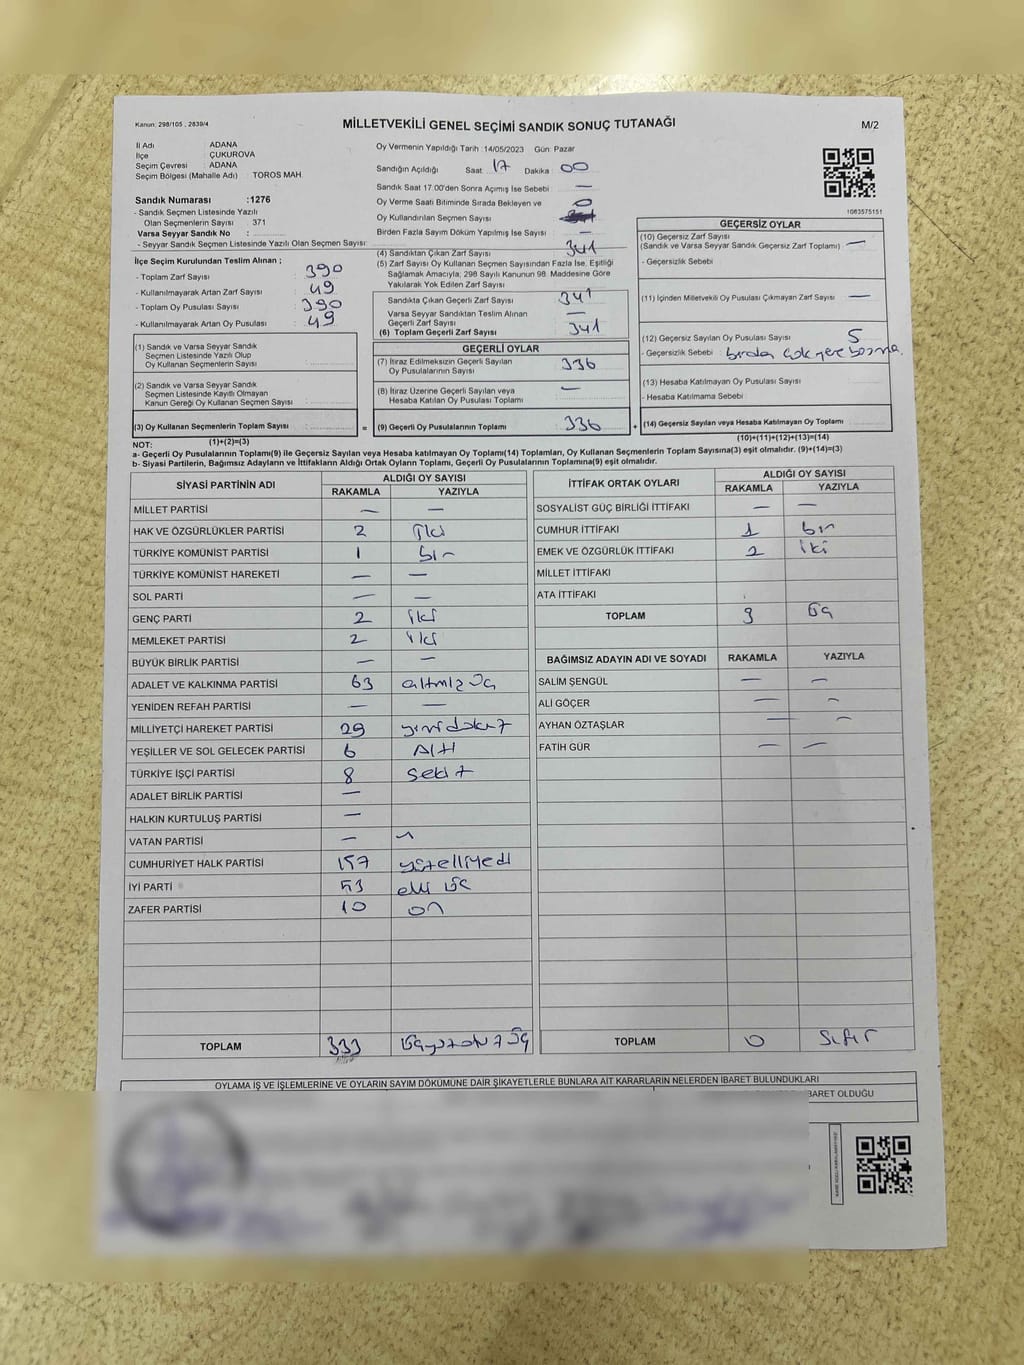 Kanun: 298/105 , 2839/4
MİLLETVEKİLİ GENEL SEÇİMİ SANDIK SONUÇ TUTANAĞI
M/2
İl Adı : ADANA
İlçe : ÇUKUROVA
Seçim Çevresi : ADANA
Seçim Bölgesi (Mahalle Adı) : TOROS MAH.
Sandık Numarası :1276
- Sandık Seçmen Listesinde Yazılı
Olan Seçmenlerin Sayısı : 371
Varsa Seyyar Sandık No :
- Seyyar Sandık Seçmen Listesinde Yazılı Olan Seçmen Sayısı:
İlçe Seçim Kurulundan Teslim Alınan ;
- Toplam Zarf Sayısı : 390
- Kullanılmayarak Artan Zarf Sayısı : 49
- Toplam Oy Pusulası Sayısı : 390
- Kullanılmayarak Artan Oy Pusulası : 49
(1) Sandık ve Varsa Seyyar Sandık
Seçmen Listesinde Yazılı Olup
Oy Kullanan Seçmenlerin Sayısı :
(2) Sandık ve Varsa Seyyar Sandık
Seçmen Listesinde Kayıtlı Olmayan
Kanun Gereği Oy Kullanan Seçmen Sayısı :
(3) Oy Kullanan Seçmenlerin Toplam Sayısı :
(1)+(2)=(3)
Oy Vermenin Yapıldığı Tarih :14/05/2023 Gün: Pazar
Sandığın Açıldığı Saat : 17 Dakika : 00
Sandık Saat 17.00'den Sonra Açımış İse Sebebi : —
Oy Verme Saati Bitiminde Sırada Bekleyen ve
Oy Kullandırılan Seçmen Sayısı : 0
Birden Fazla Sayım Döküm Yapılmış İse Sayısı : —
(4) Sandıktan Çıkan Zarf Sayısı : 341
(5) Zarf Sayısı Oy Kullanan Seçmen Sayısından Fazla İse, Eşitliği
Sağlamak Amacıyla; 298 Sayılı Kanunun 98. Maddesine Göre
Yakılarak Yok Edilen Zarf Sayısı :
Sandıkta Çıkan Geçerli Zarf Sayısı : 341
Varsa Seyyar Sandıktan Teslim Alınan
Geçerli Zarf Sayısı : —
(6) Toplam Geçerli Zarf Sayısı : 341
GEÇERLİ OYLAR
(7) İtiraz Edilmeksizin Geçerli Sayılan
Oy Pusulalarının Sayısı : 336
(8) İtiraz Üzerine Geçerli Sayılan veya
Hesaba Katılan Oy Pusulası Toplamı : —
= (9) Geçerli Oy Pusulalarının Toplamı : 336
1063575151
GEÇERSİZ OYLAR
(10) Geçersiz Zarf Sayısı
(Sandık ve Varsa Seyyar Sandık Geçersiz Zarf Toplamı) : —
- Geçersizlik Sebebi :
(11) İçinden Milletvekili Oy Pusulası Çıkmayan Zarf Sayısı : —
(12) Geçersiz Sayılan Oy Pusulası Sayısı : 5
- Geçersizlik Sebebi :
(13) Hesaba Katılmayan Oy Pusulası Sayısı :
- Hesaba Katılmama Sebebi :
+ (14) Geçersiz Sayılan veya Hesaba Katılmayan Oy Toplamı :
(10)+(11)+(12)+(13)=(14)
NOT:
a- Geçerli Oy Pusulalarının Toplamı(9) ile Geçersiz Sayılan veya Hesaba katılmayan Oy Toplamı(14) Toplamları, Oy Kullanan Seçmenlerin Toplam Sayısına(3) eşit olmalıdır. (9)+(14)=(3)
b- Siyasi Partilerin, Bağımsız Adayların ve İttifakların Aldığı Ortak Oyların Toplamı, Geçerli Oy Pusulalarının Toplamına(9) eşit olmalıdır.
SİYASİ PARTİNİN ADI ALDIĞI OY SAYISI
RAKAMLA YAZIYLA
MİLLET PARTİSİ — —
HAK VE ÖZGÜRLÜKLER PARTİSİ 2 İki
TÜRKİYE KOMÜNİST PARTİSİ 1 bir
TÜRKİYE KOMÜNİST HAREKETİ — —
SOL PARTİ — —
GENÇ PARTİ 2 iki
MEMLEKET PARTİSİ 2 iki
BÜYÜK BİRLİK PARTİSİ — —
ADALET VE KALKINMA PARTİSİ 63 altmış üç
YENİDEN REFAH PARTİSİ — —
MİLLİYETÇİ HAREKET PARTİSİ 29 yirmi dokuz
YEŞİLLER VE SOL GELECEK PARTİSİ 6 Altı
TÜRKİYE İŞÇİ PARTİSİ 8 sekiz
ADALET BİRLİK PARTİSİ —
HALKIN KURTULUŞ PARTİSİ —
VATAN PARTİSİ — —
CUMHURİYET HALK PARTİSİ 157 yüzelliyedi
İYİ PARTİ 53 elli üç
ZAFER PARTİSİ 10 on
TOPLAM 333 üçyüzotuz üç
İTTİFAK ORTAK OYLARI ALDIĞI OY SAYISI
RAKAMLA YAZIYLA
SOSYALİST GÜÇ BİRLİĞİ İTTİFAKI — —
CUMHUR İTTİFAKI 1 bir
EMEK VE ÖZGÜRLÜK İTTİFAKI 2 iki
MİLLET İTTİFAKI
ATA İTTİFAKI
TOPLAM 3 üç
BAĞIMSIZ ADAYIN ADI VE SOYADI RAKAMLA YAZIYLA
SALİM ŞENGÜL — —
ALİ GÖÇER — —
AYHAN ÖZTAŞLAR — —
FATİH GÜR — —
TOPLAM 0 Sıfır
OYLAMA İŞ VE İŞLEMLERİNE VE OYLARIN SAYIM DÖKÜMÜNE DAİR ŞİKAYETLERLE BUNLARA AİT KARARLARIN NELERDEN İBARET BULUNDUKLARI
BARET OLDUĞU